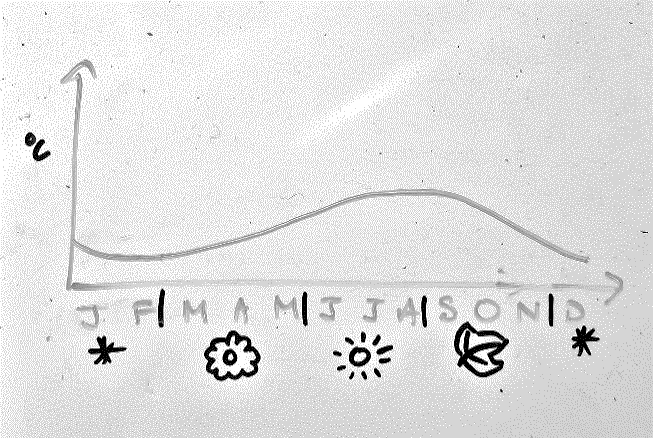 °C
J F M A M J J A S O N D